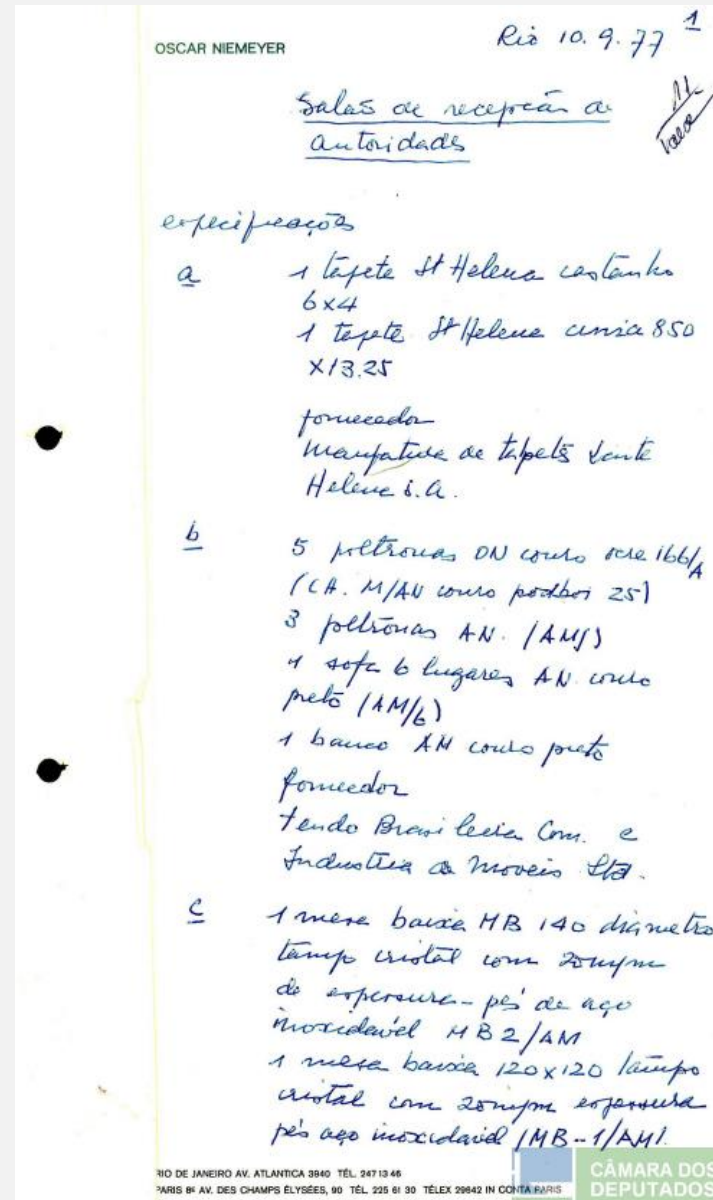 OSCAR NIEMEYER
Rio 10.9.77
1
Salas de recepção de
autoridades
especificações
a
1 tapete St Helena castanho
6x4
1 tapete St Helena cinza 850
x13.25
fornecedor
Manufatura de tapetes Sante
Helena S.A.
b
5 poltronas ON couro ocre 166/A
(CA. M/AN couro 25)
3 poltronas AN.
1 sofa 6 lugares AN couro
preto (AM/6)
1 banco AN couro preto
fornecedor
Tendo Brasileira Com. e
Industria de Moveis Ltd.
c
1 mesa baixa MB 140 diametro
tampo cristal com 20m/m
de espessura - pés de aço
inoxidavel MB2/AM
1 mesa baixa 120x120 tampo
cristal com 20m/m espessura
pés aço inoxidavel (MB-1/AM).
RIO DE JANEIRO AV. ATLANTICA 3940 TÉL. 247 13 46
PARIS 8e AV. DES CHAMPS ÉLYSÉES, 90 TÉL. 225 61 30 TÉLEX 29642 IN CONTA PARIS
CÂMARA DOS
DEPUTADOS